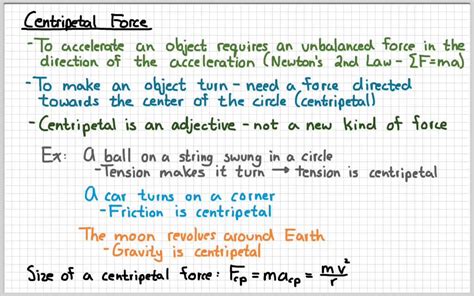 Centripetal Force
- To accelerate an object requires an unbalanced force in the
direction of the acceleration (Newton's 2nd Law - ΣF=ma)
- To make an object turn - need a force directed
towards the center of the circle (centripetal)
- Centripetal is an adjective - not a new kind of force
Ex: A ball on a string swung in a circle
- Tension makes it turn → tension is centripetal
A car turns on a corner
- Friction is centripetal
The moon revolves around Earth
- Gravity is centripetal
Size of a centripetal force: F_cp = ma_cp = mv²/r